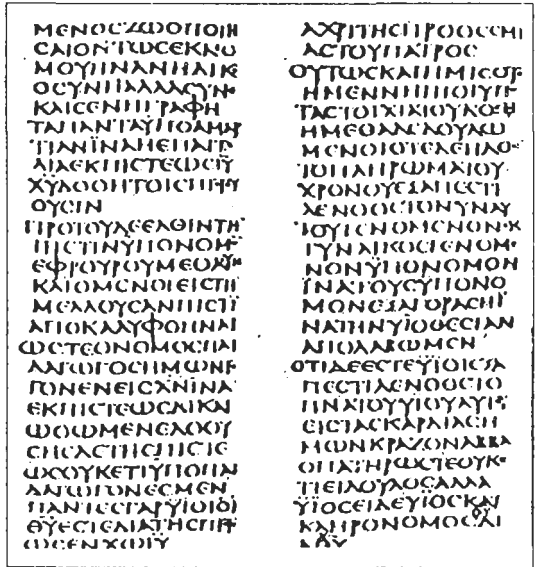 ΜΕΝΟCΖΩΟΠΟΙΗ
CΑΙΟΝΤΩCΕΚΝΟ
ΜΟΥΗΝΑΝΗΔΙΚΕ
ΟCΥΝΗΑΛΛΑCΥΝΕ
ΚΛΙCΕΝΗΓΡΑΦΗ
ΤΑΠΑΝΤΑΫΠΟΑΜΑΡ
ΤΙΑΝΪΝΑΗΕΠΑΓΓΕ
ΛΙΑΕΚΠΙCΤΕΩCΙΥ
ΧΥΔΟΘΗΤΟΙCΠΙCΤΕΥ
ΟΥCΙΝ
ΠΡΟΤΟΥΔΕΕΛΘΙΝΤΗ
ΠΙCΤΙΝΫΠΟΝΟΜΟ
ΕΦΡΟΥΡΟΥΜΕΘΑCΥΝ
ΚΛΙΟΜΕΝΟΙΕΙCΤΗ
ΜΕΛΛΟΥCΑΝΠΙCΤΙ
ΑΠΟΚΑΛΥΦΘΗΝΑΙ
ΩCΤΕΟΝΟΜΟCΠΑΙ
ΔΑΓΩΓΟCΗΜΩΝΓΕ
ΓΟΝΕΝΕΙCΧΝΙΝΑ
ΕΚΠΙCΤΕΩCΔΙΚΑΙ
ΩΘΩΜΕΝΕΛΘΟΥ
CΗCΔΕΤΗCΠΙCΤΕ
ΩCΟΥΚΕΤΙΫΠΟΠΑΙ
ΔΑΓΩΓΟΝΕCΜΕΝ
ΠΑΝΤΕCΓΑΡΫΙΟΙΘΥ
ΕCΤΕΔΙΑΤΗCΠΙCΤΕ
ΩCΕΝΧΩΙΥ
ΑΧΡΙΤΗCΠΡΟΘΕCΜΙ
ΑCΤΟΥΠΑΤΡΟC
ΟΥΤΩCΚΑΙΗΜΙCΟΤΕ
ΗΜΕΝΝΗΠΙΟΙΫΠΟ
ΤΑCΤΟΙΧΙΑΤΟΥΚΟCΜΟΥ
ΗΜΕΘΑΔΕΔΟΥΛΩ
ΜΕΝΟΙΟΤΕΔΕΗΛΘΕ
ΤΟΠΛΗΡΩΜΑΤΟΥ
ΧΡΟΝΟΥΕΞΑΠΕCΤΙ
ΛΕΝΟΘCΤΟΝΥΝΑΥ
ΤΟΥΓΕΝΟΜΕΝΟΝΕΚ
ΓΥΝΑΙΚΟCΓΕΝΟΜΕ
ΝΟΝΫΠΟΝΟΜΟΝ
ΪΝΑΤΟΥCΫΠΟΝΟ
ΜΟΝΕΞΑΓΟΡΑCΗΙ
ΝΑΤΗΝΫΙΟΘΕCΙΑΝ
ΑΠΟΛΑΒΩΜΕΝ
ΟΤΙΔΕΕCΤΕΫΙΟΙΕΞΑ
ΠΕCΤΙΛΕΝΟΘCΤΟ
ΠΝΑΤΟΥΫΙΟΥΑΥΤΟΥ
ΕΙCΤΑCΚΑΡΔΙΑCΗ
ΜΩΝΚΡΑΖΟΝΑΒΒΑ
ΟΠΑΤΗΡΩCΤΕΟΥΚΕ
ΤΙΕΙΔΟΥΛΟCΑΛΛΑ
ΫΙΟCΕΙΔΕΫΙΟCΚΑΙ
ΚΛΗΡΟΝΟΜΟCΔΙ
ΑΘΥ